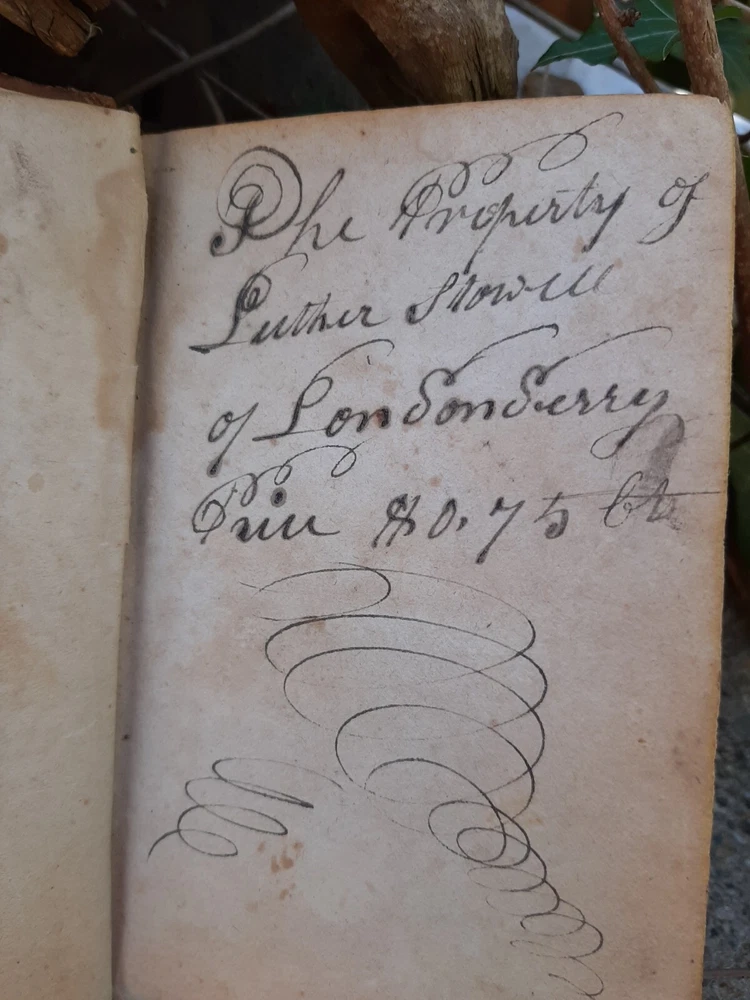 The Property of
Luther Stowell
of Londonderry
Price $0.75 Ct